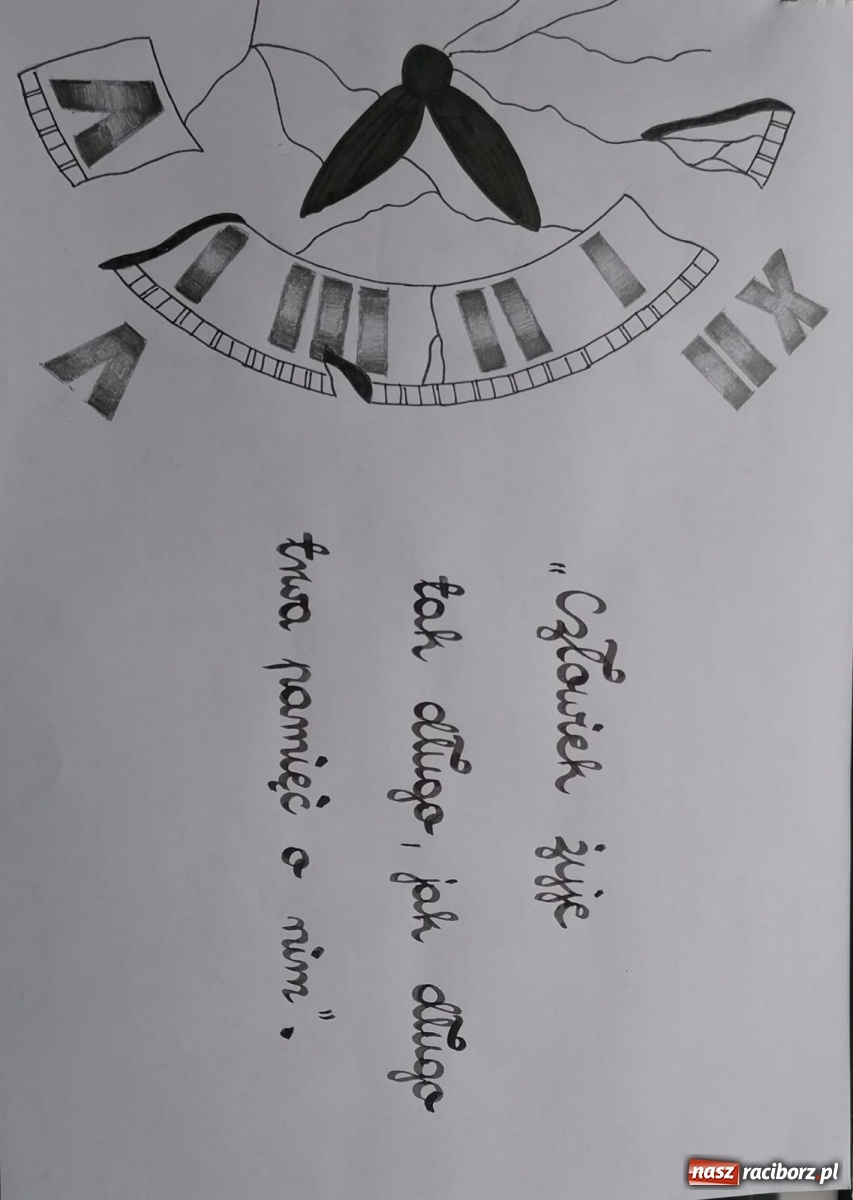 XII
I
II
III
I
V
V
„Człowiek żyje
tak długo, jak długo
trwa pamięć o nim”.
nasz raciborz.pl